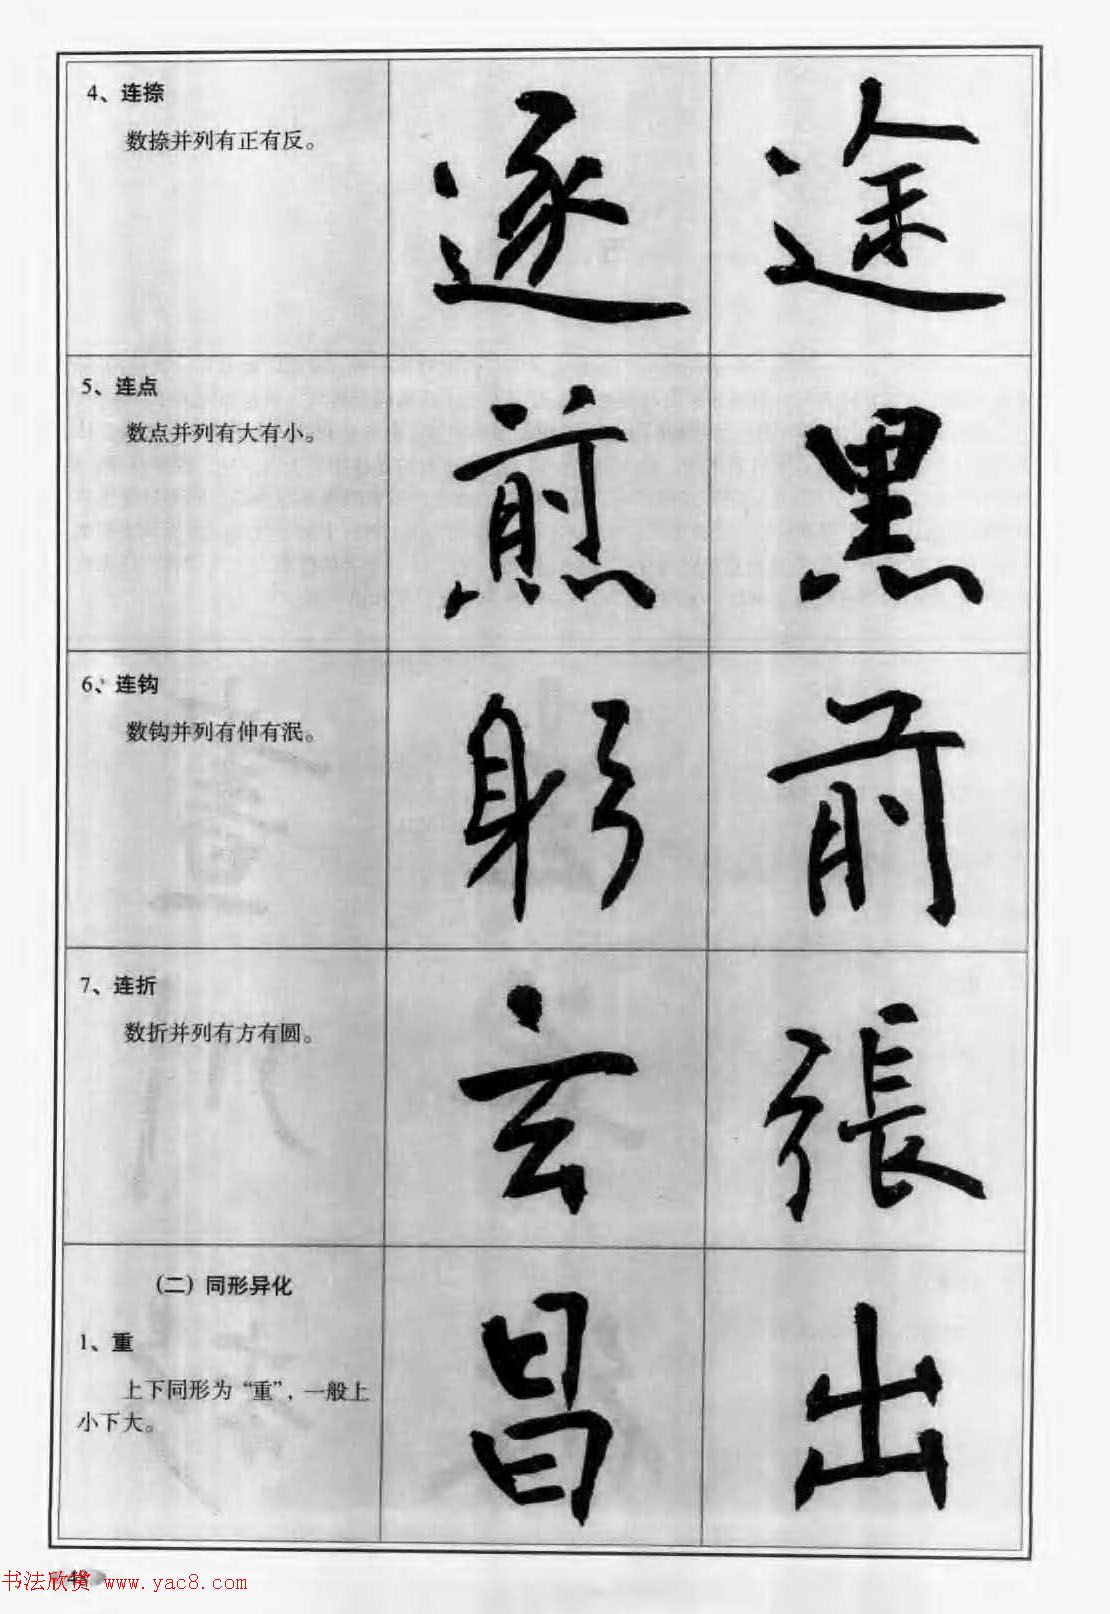 4、连捺
数捺并列有正有反。
逐 途
5、连点
数点并列有大有小。
煎 黑
6、连钩
数钩并列有伸有泯。
躬 前
7、连折
数折并列有方有圆。
玄 張
（二）同形异化
1、重
上下同形为“重”，一般上
小下大。
昌 出
书法欣赏 www.yac8.com